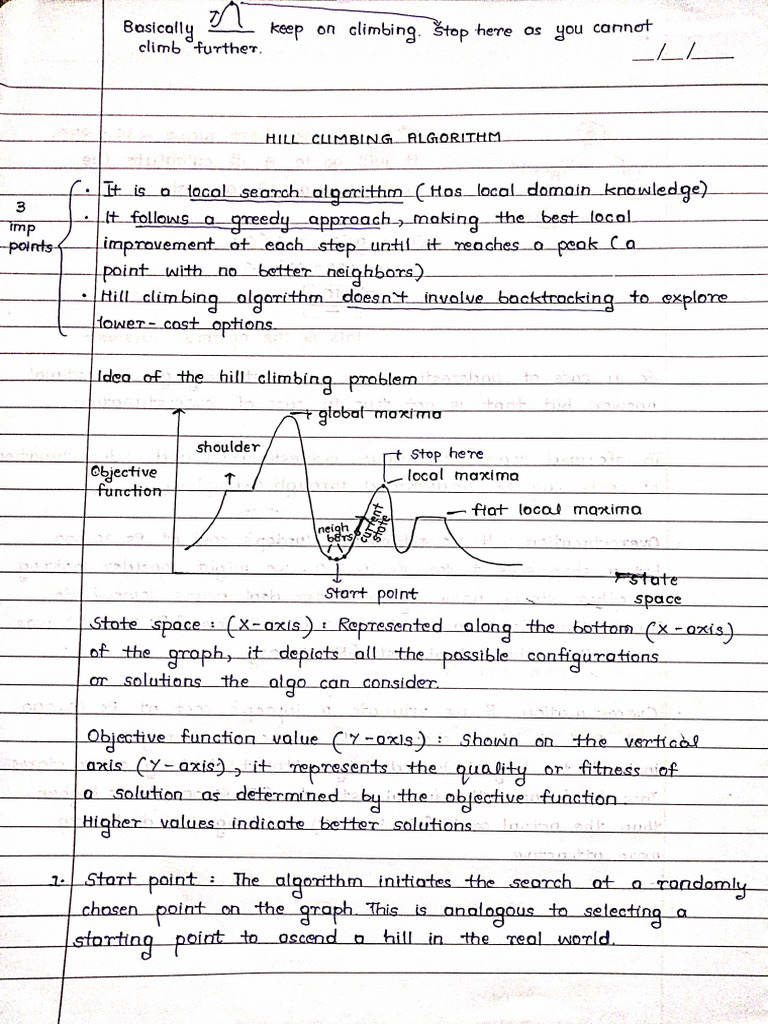 Basically keep on climbing. Stop here as you cannot
climb further.
_/_/_
HILL CLIMBING ALGORITHM
3
imp
points
• It is a local search algorithm (Has local domain knowledge)
• It follows a greedy approach, making the best local
improvement at each step until it reaches a peak (a
point with no better neighbors)
• Hill climbing algorithm doesn't involve backtracking to explore
lower-cost options.
Idea of the hill climbing problem
global maxima
shoulder
Stop here
local maxima
Objective
function
flat local maxima
neigh
bors
current
state
Start point
state
space
State space : (X-axis) : Represented along the bottom (X-axis)
of the graph, it depicts all the possible configurations
or solutions the algo can consider.
Objective function value (Y-axis) : Shown on the vertical
axis (Y-axis), it represents the quality or fitness of
a solution as determined by the objective function.
Higher values indicate better solutions
1. Start point : The algorithm initiates the search at a randomly
chosen point on the graph. This is analogous to selecting a
starting point to ascend a hill in the real world.